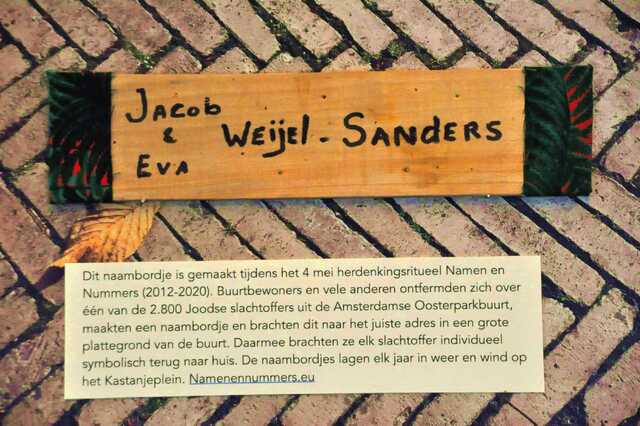 Jacob
&
Eva
Weijel - Sanders
Dit naambordje is gemaakt tijdens het 4 mei herdenkingsritueel Namen en
Nummers (2012-2020). Buurtbewoners en vele anderen ontfermden zich over
één van de 2.800 Joodse slachtoffers uit de Amsterdamse Oosterparkbuurt,
maakten een naambordje en brachten dit naar het juiste adres in een grote
plattegrond van de buurt. Daarmee brachten ze elk slachtoffer individueel
symbolisch terug naar huis. De naambordjes lagen elk jaar in weer en wind op
het Kastanjeplein. Namenennummers.eu